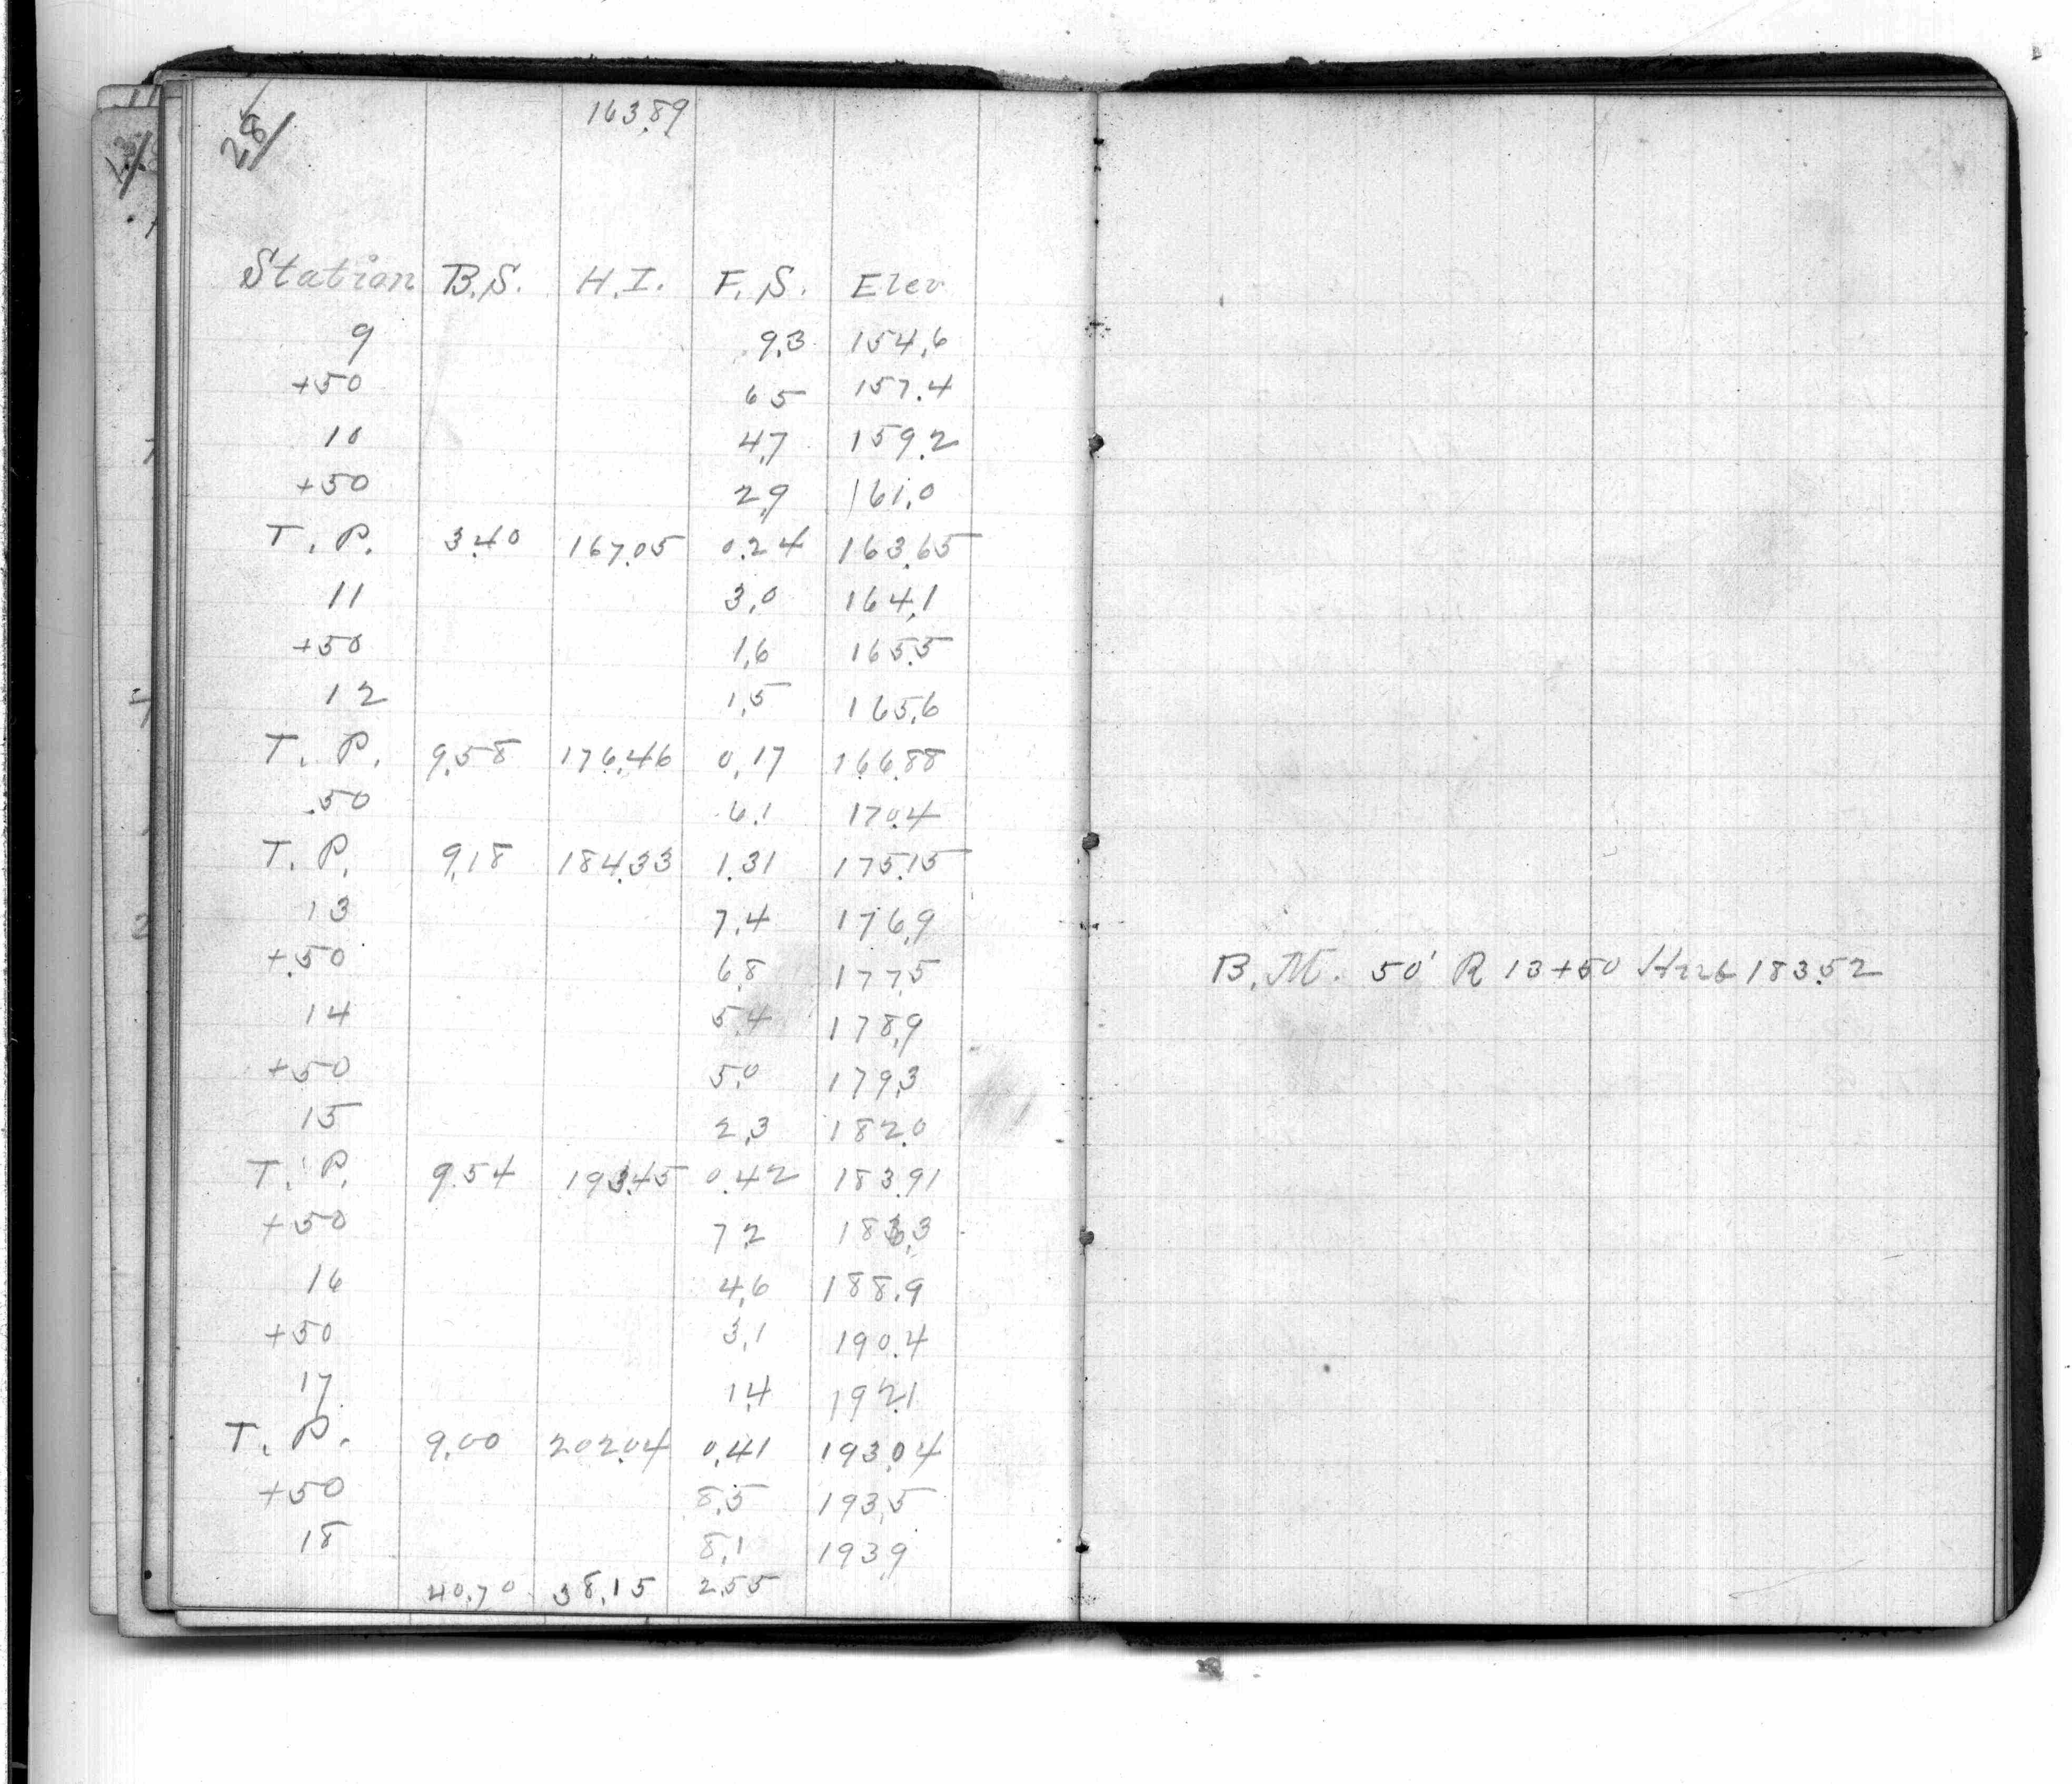 28/
163.89
Station B.S. H.I. F.S. Elev
9 9.3 154.6
+50 6 5 157.4
10 4.7 159.2
+50 2.9 161.0
T.P. 3.40 167.05 0.24 163.65
11 3.0 164.1
+50 1.6 165.5
12 1.5 165.6
T.P. 9.58 176.46 0.17 166.88
.50 6.1 170.4
T.P. 9.18 184.33 1.31 175.15
13 7.4 176.9
+.50 6.8 177.5
14 5.4 178.9
+50 5.0 179.3
15 2.3 182.0
T.P. 9.54 193.45 0.42 183.91
+50 7.2 186.3
16 4.6 188.9
+50 3.1 190.4
17 1.4 192.1
T.P. 9.00 202.04 0.41 193.04
+50 8.5 193.5
18 8.1 193.9
40.70 38.15 2.55
B.M. 50' R 13+50 Hub 183.52